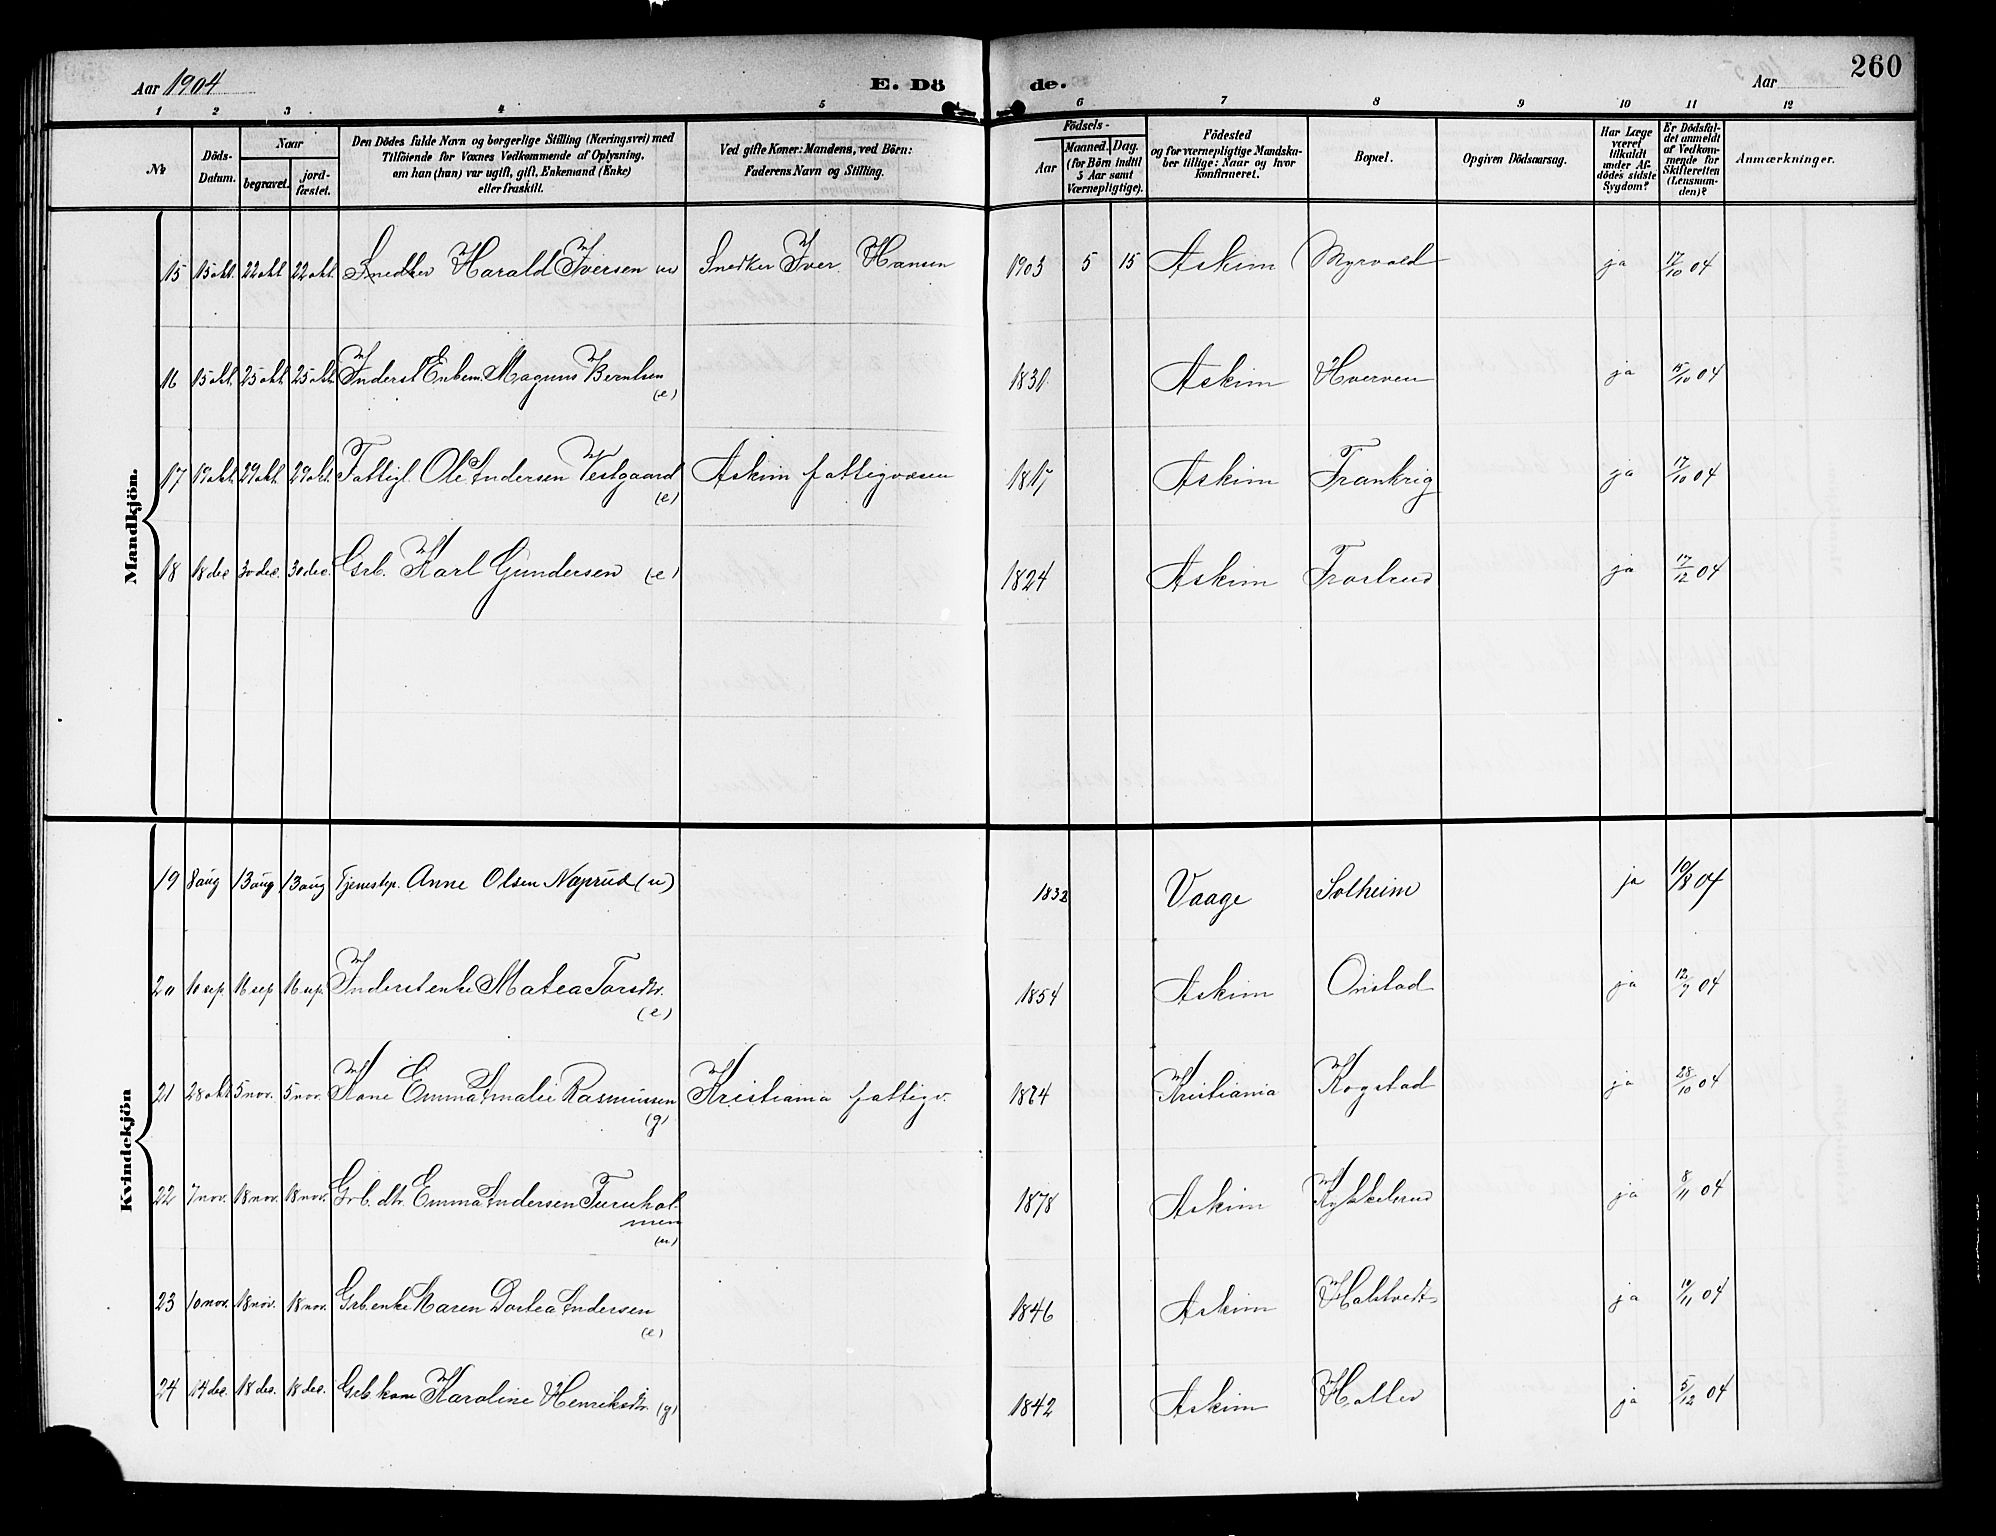 260
Aar 1904 E. Dö de. Aar
1 2 3 4 5 6 7 8 9 10 11 12
№
Döds-Datum.
Naar
begravet. jord-fæstet.
Den Dödes fulde Navn og borgerlige Stilling (Næringsvei) med
Tilföiende for Voxnes Vedkommende af Oplysning,
om han (hun) var ugift, gift, Enkemand (Enke)
eller fraskilt.
Ved gifte Koner: Mandens, ved Börn:
Faderens Navn og Stilling.
Födsels-
Aar Maaned. Dag.
(for Börn indtil
5 Aar samt
Værnepligtige).
Födested
og for værnepligtige Mandska-
ber tillige: Naar og hvor
Konfirmeret.
Bopæl.
Opgiven Dödsaarsag.
Har Læge
været
tilkaldt
under Af-
dödes sidste
Sygdom?
Er Dödsfal-
det anmeldt
af Vedkom-
mende for
Skifteretten
(Lensman-
den)?
Anmærkninger.
Mandkjön.
15 15 okt. 22 okt 22 okt. Snedker Harald Iversen Snedker Iver Hansen 1903 5 15 Askim Myrvold ja 17/10 04
16 15 okt. 25 okt. 25 okt. Inderst Enkem. Magnus Berntsen 1831. Askim Hverven ja 15/10 04
(e)
17 29 okt. 29 okt. Fattigl. Ole Andersen Vestgaard Askim fattigvæsen Askim Frankrig ja 17/10 04
(e)
18 18 dec 30 dec. 30 dec. Grb. Karl Gundersen (e) 1824 Askim ja 17/12 04
Kvindekjön
19 8 aug 13 aug 13 aug Tjenestep. Anne Olsen Næprud (u) Vaage Solheim ja 10/8 04
20 10 sep. 16 sep 16 sep. Inderst enke Matea Torsdtr. 1854 Askim Onstad ja 12/9 04
(e)
21 28 okt 5 nov. 5 nov. Kone Emma Amalie Rasmussen Kristiania fattigv. 1874 Kristiania Kogstad ja 28/10 04
(g)
22 7 nov. 18 nov. 18 nov. Grb. dtr. Emma Andersen Furuhol-
men
(u) 1878 Askim Kykkelsrud ja 8/11 04
23 10 nov. 18 nov. 18 nov. Grb. enke Karen Dortea Andersen 1846 Askim ja 10/11 04
(e)
24 14 dec. 18 dec. 18 dec. Grb kone Karoline Henriksdtr. (g) 1842 Askim Holter ja 5/12 04